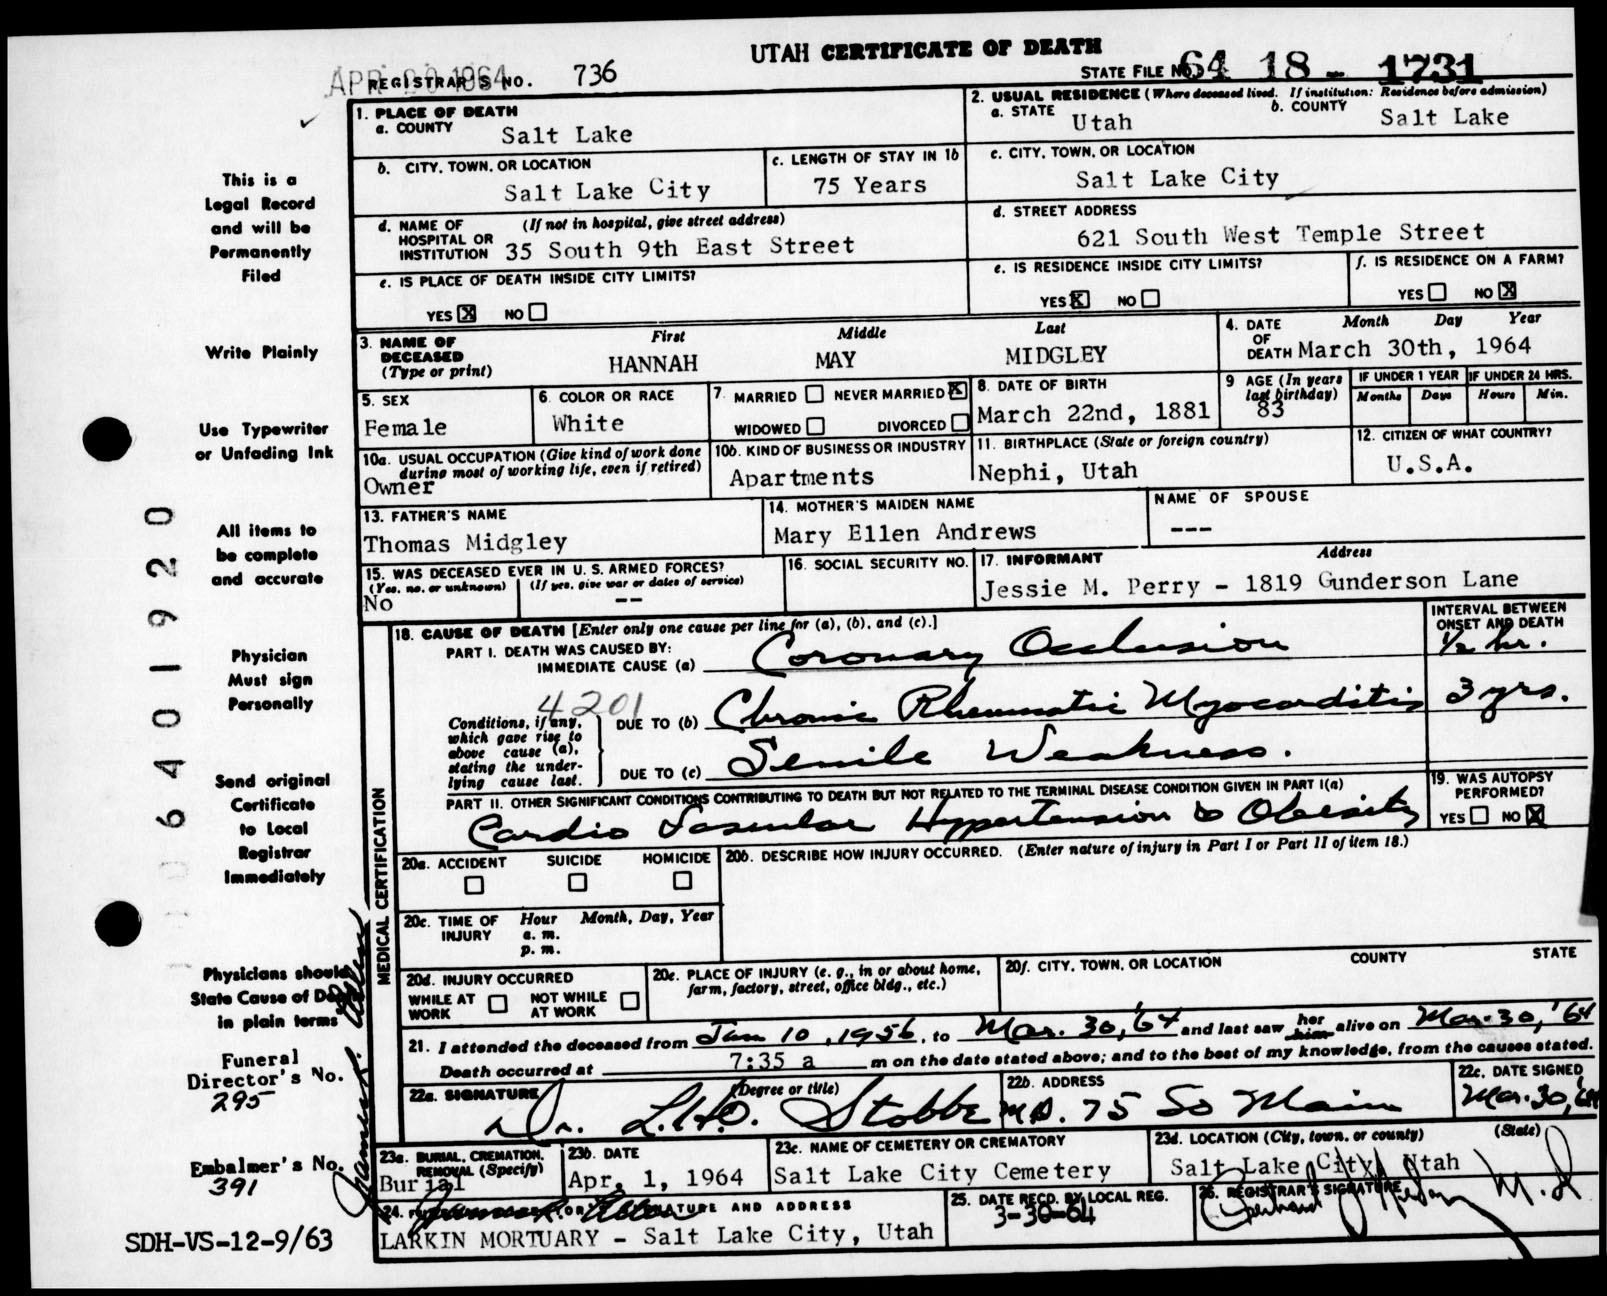 UTAH CERTIFICATE OF DEATH
APR 20 1964
REGISTRAR'S NO. 736
STATE FILE NO. 64 18 - 1731
1. PLACE OF DEATH
a. COUNTY Salt Lake
2. USUAL RESIDENCE (Where deceased lived. If institution: Residence before admission)
a. STATE Utah b. COUNTY Salt Lake
b. CITY, TOWN, OR LOCATION Salt Lake City
c. LENGTH OF STAY IN 1b 75 Years
c. CITY, TOWN, OR LOCATION Salt Lake City
d. NAME OF HOSPITAL OR INSTITUTION (If not in hospital, give street address) 35 South 9th East Street
d. STREET ADDRESS 621 South West Temple Street
e. IS PLACE OF DEATH INSIDE CITY LIMITS?
YES X NO
e. IS RESIDENCE INSIDE CITY LIMITS?
YES X NO
f. IS RESIDENCE ON A FARM?
YES NO X
3. NAME OF DECEASED (Type or print)
First Middle Last
HANNAH MAY MIDGLEY
4. DATE OF DEATH Month Day Year
March 30th, 1964
5. SEX Female
6. COLOR OR RACE White
7. MARRIED NEVER MARRIED X
WIDOWED DIVORCED
8. DATE OF BIRTH March 22nd, 1881
9 AGE (In years last birthday) 83
IF UNDER 1 YEAR Months Days
IF UNDER 24 HRS. Hours Min.
10a. USUAL OCCUPATION (Give kind of work done during most of working life, even if retired)
Owner
10b. KIND OF BUSINESS OR INDUSTRY
Apartments
11. BIRTHPLACE (State or foreign country)
Nephi, Utah
12. CITIZEN OF WHAT COUNTRY?
U.S.A.
13. FATHER'S NAME
Thomas Midgley
14. MOTHER'S MAIDEN NAME
Mary Ellen Andrews
NAME OF SPOUSE
---
15. WAS DECEASED EVER IN U. S. ARMED FORCES?
(Yes, no, or unknown) (If yes, give war or dates of service)
No --
16. SOCIAL SECURITY NO.
17. INFORMANT Address
Jessie M. Perry - 1819 Gunderson Lane
MEDICAL CERTIFICATION
18. CAUSE OF DEATH [Enter only one cause per line for (a), (b), and (c).]
INTERVAL BETWEEN ONSET AND DEATH
PART I. DEATH WAS CAUSED BY:
IMMEDIATE CAUSE (a) Coronary Occlusion 1/2 hr.
4201
Conditions, if any, which gave rise to above cause (a), stating the underlying cause last.
DUE TO (b) Chronic Rheumatic Myocarditis 3 yrs.
DUE TO (c) Senile Weakness.
PART II. OTHER SIGNIFICANT CONDITIONS CONTRIBUTING TO DEATH BUT NOT RELATED TO THE TERMINAL DISEASE CONDITION GIVEN IN PART I(a)
Cardio Vascular Hypertension & Obesity
19. WAS AUTOPSY PERFORMED?
YES NO X
20a. ACCIDENT SUICIDE HOMICIDE
20b. DESCRIBE HOW INJURY OCCURRED. (Enter nature of injury in Part I or Part II of item 18.)
20c. TIME OF INJURY Hour Month, Day, Year
a. m.
p. m.
20d. INJURY OCCURRED
WHILE AT WORK NOT WHILE AT WORK
20e. PLACE OF INJURY (e. g., in or about home, farm, factory, street, office bldg., etc.)
20f. CITY, TOWN, OR LOCATION COUNTY STATE
21. I attended the deceased from Jan 10, 1956, to Mar. 30, '64 and last saw her him alive on Mar. 30, '64
Death occurred at 7:35 a m on the date stated above; and to the best of my knowledge, from the causes stated.
22a. SIGNATURE (Degree or title)
Dr. L.H.O. Stobbe M.D.
22b. ADDRESS
75 So Main
22c. DATE SIGNED
Mar. 30, '64
23a. BURIAL, CREMATION, REMOVAL (Specify)
Burial
23b. DATE
Apr. 1, 1964
23c. NAME OF CEMETERY OR CREMATORY
Salt Lake City Cemetery
23d. LOCATION (City, town, or county) (State)
Salt Lake City, Utah
24. SIGNATURE AND ADDRESS
LARKIN MORTUARY - Salt Lake City, Utah
25. DATE RECD. BY LOCAL REG.
3-30-64
26. REGISTRAR'S SIGNATURE
M.D
This is a
Legal Record
and will be
Permanently
Filed
Write Plainly
Use Typewriter
or Unfading Ink
All items to
be complete
and accurate
Physician
Must sign
Personally
Send original
Certificate
to Local
Registrar
Immediately
Physicians should
State Cause of Death
in plain terms
Funeral
Director's No.
295
Embalmer's No.
391
SDH-VS-12-9/63
6401920